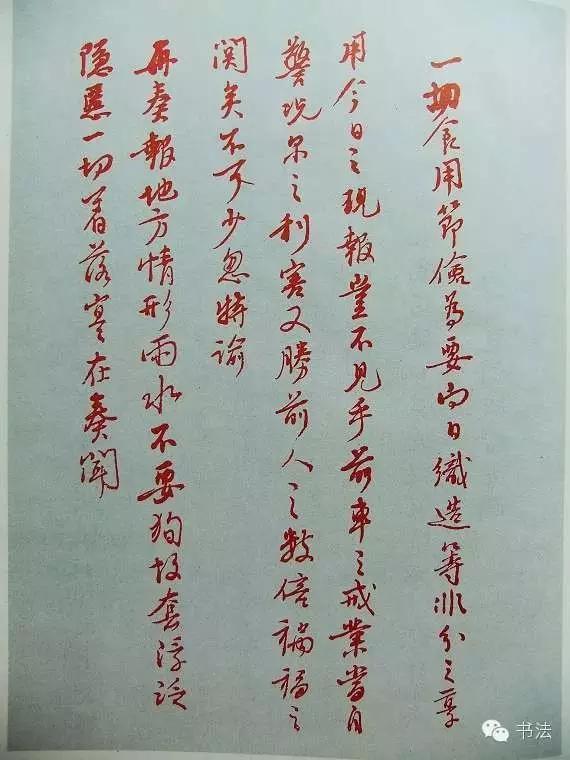 一切食用節儉為要向日織造等非分之享
用今日之現報豈不見乎前車之戒業當自
警況尔之利害又勝前人之數倍禍福之
関矣不可少忽特諭
再奏報地方情形雨水不要狥故套浮泛
隐匿一切着落寔在奏闻
书法